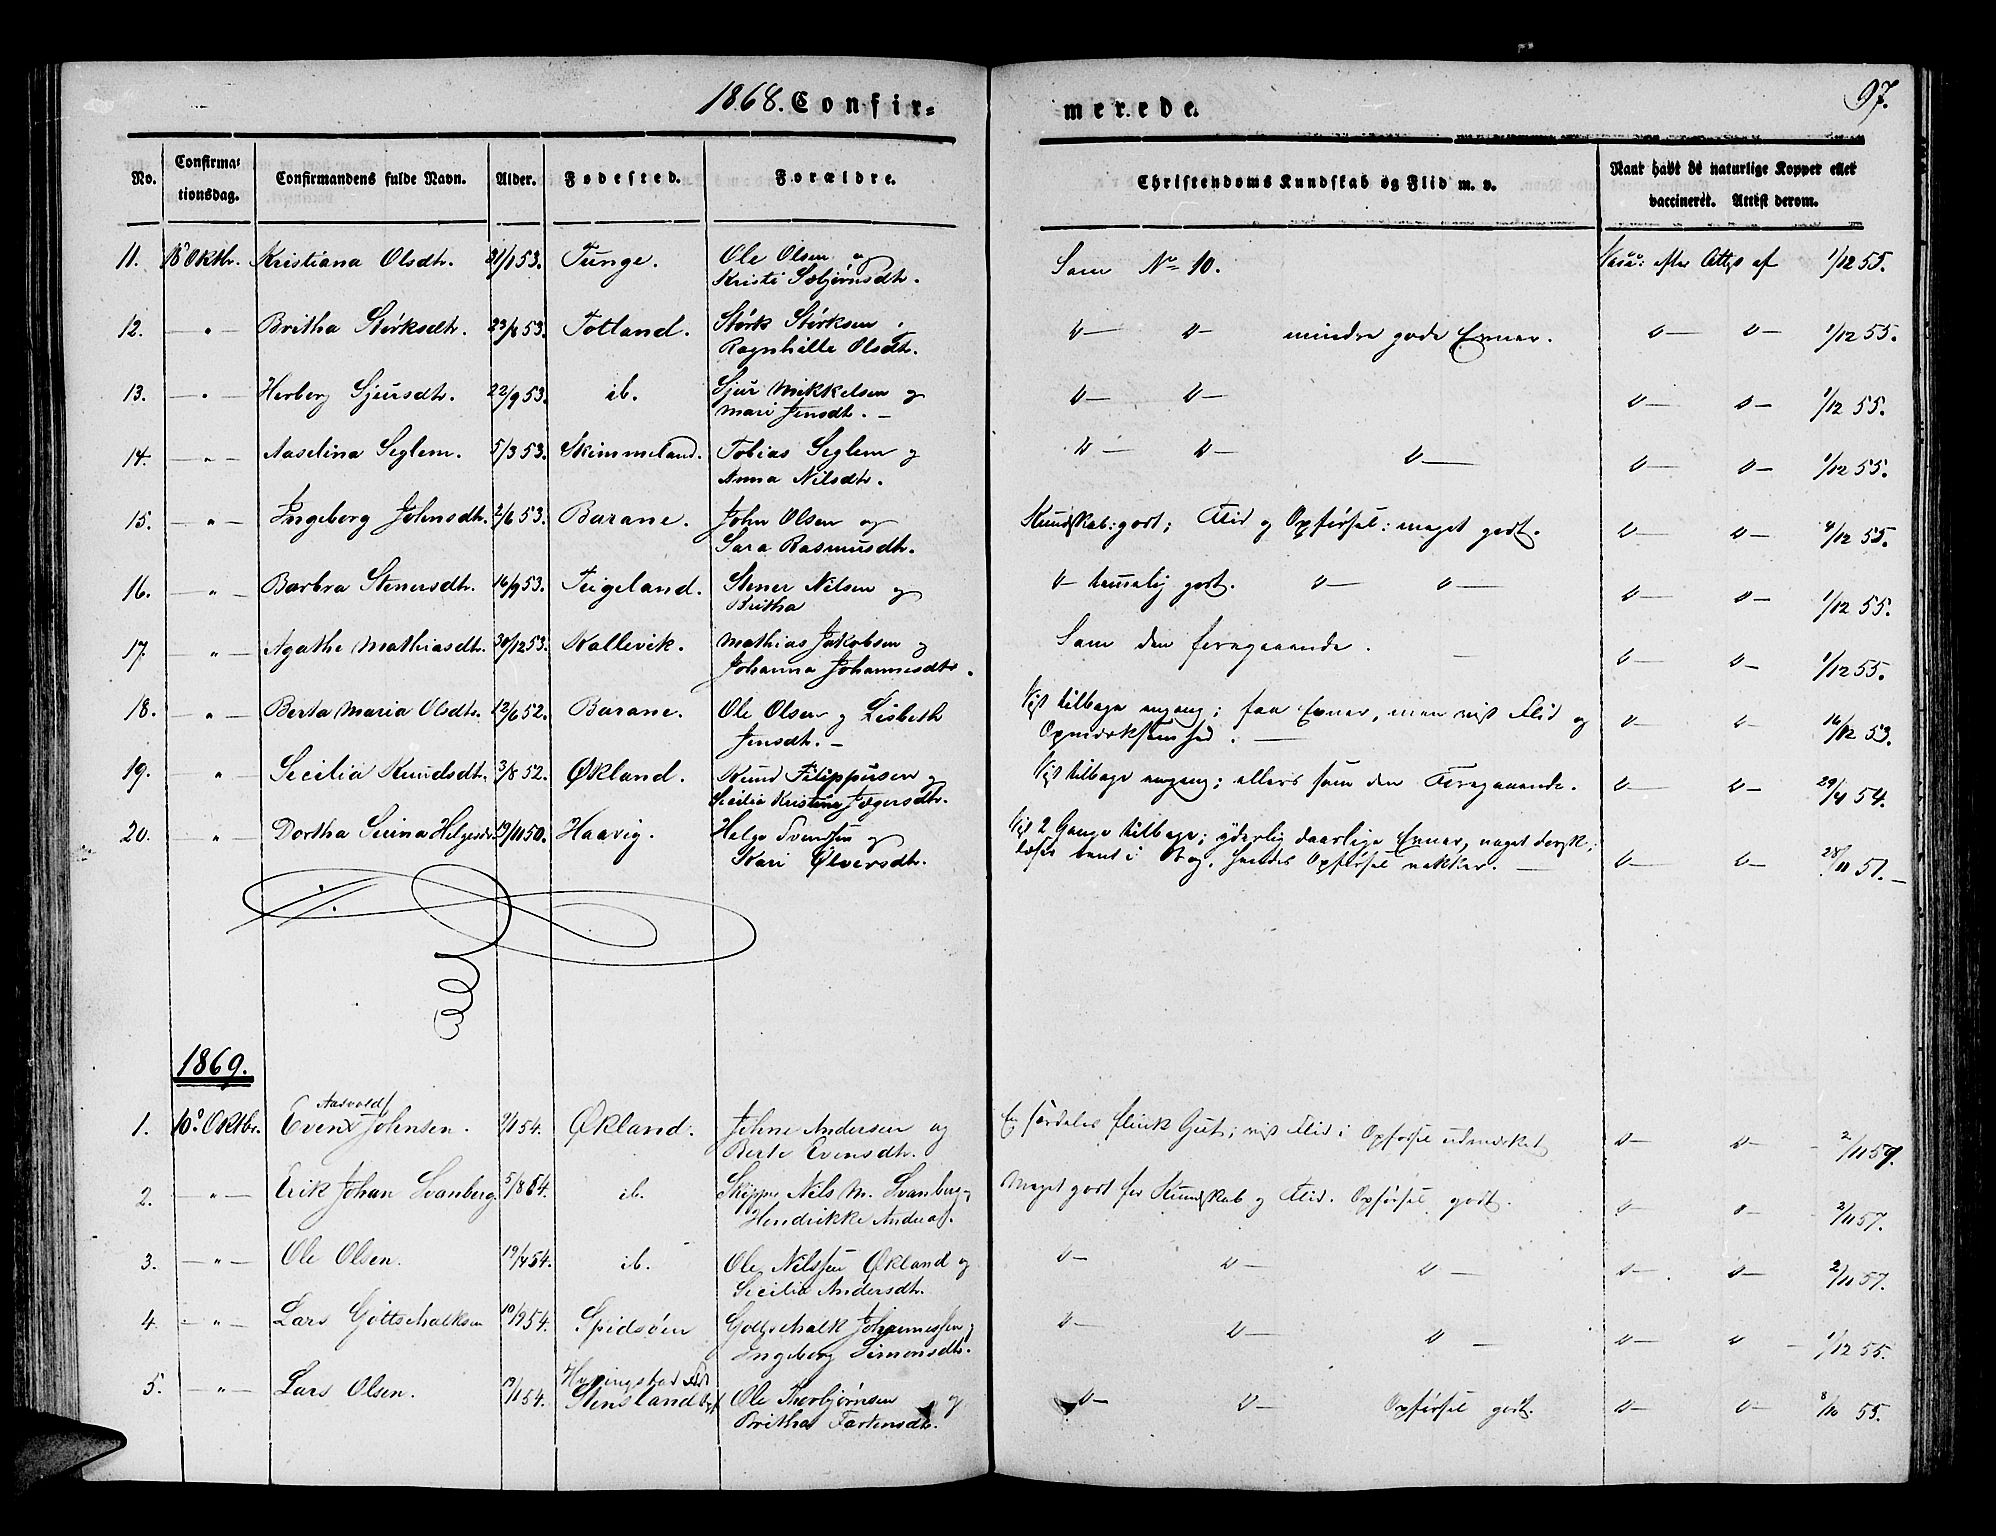 1868. Confir=
merede.
97.
No.
Confirma=
tionsdag.
Confirmandens fulde Navn.
Alder.
Fødested.
Forældre.
Christendoms Kundskab og Flid m. v.
Naar havt de naturlige Kopper eller
vaccineret. Attest derom.
11. 18 Oktbr. Kristiana Olsdtr. 21/1 53. Tunge. Ole Olsen og
Kristi Sebjörnsdtr.
Som No 10. Vacc: efter Attest af 1/12 55.
12. — " — Britha Störksdtr. 23/6 53. Totland. Störk Störksen og
Ragnhille Olsdtr.
v— v— mindre gode Evner. v— v— 1/12 55.
13. — " — Herborg Sjursdtr. 22/9 53. ib. Sjur Mikkelsen og
Mari Jensdtr. —
v— v— v— v— 1/12 55.
14. — " — Aaselina Seglem. 5/3 53. Skimmeland. Tobias Seglem og
Anna Nilsdtr.
v— v— v— v— v— 1/12 55.
15. — " — Ingeborg Johnsdtr. 2/6 53. Barane. John Olsen og
Sara Rasmusdtr.
Kundskab: godt; Flid og Opførsel: meget godt. v— v— 4/12 55.
16. — " — Barbra Stenersdtr. 16/9 53. Teigeland. Stener Nilsen og
Britha
v— temmelig godt. v— v— v— v— 1/12 55.
17. — " — Agathe Mathiasdtr. 30/12 53. Kallevik. Mathias Jakobsen og
Johanna Johannesdtr.
Som den foregaaende. — v— v— 1/12 55.
18. — " — Berta Maria Olsdtr. 12/6 52. Barane. Ole Olsen og Lisbeth
Jensdtr. —
Vist tilbage engang; faa Evner, men vist Flid og
Opmærksomhed. —
v— v— 16/12 53.
19. — " — Secilia Knudsdtr. 3/8 52. Økland. Knud Filippusen og
Secilia Kristine Jægersdtr.
Vist tilbage engang; ellers som den Foregaaende. v— v— 29/4 54.
20. — " — Dortha Serina Helgesdr. 19/11 50. Haavig. Helge Svendsen og
Kari Ølversdtr.
Vist 2 Gange tilbage; yderlig daarlige Evner, noget dorsk;
læser bent i Bog. Hendes Opførsel vakker. —
v— v— 28/11 51. —
1869.
Aasvold
1. 10. Oktbr. Even Johnsen. 9/1 54. Økland. Johne Andersen og
Berte Evensdtr.
En særdeles flink Gut; vist Flid i Opførsel udmærket v— v— 2/11 57.
2. — " — Erik Johan Svanberg. 5/8 54. ib. Skipper Nils M. Svanberg og
Hendrikke Andrea.
Meget godt for Kundskab og Flid. Opførsel godt. v— v— 2/11 57.
3. — " — Ole Olsen. 19/4 54. ib. Ole Nilssen Økland og
Secilia Andersdtr.
v— v— v— v— v— 2/11 57.
4. — " — Lars Gottschalksen 10/9 54. Spidsøen Gottschalk Johannessen og
Ingeborg Simonsdtr.
v— v— v— v— v — 1/12 55.
5. — " — Lars Olsen. 19/1 54. Stensland Ole Thorbjørnsen og
Britha Tortensdtr.
v— v— Opførsel godt. v— v— 8/10 55.